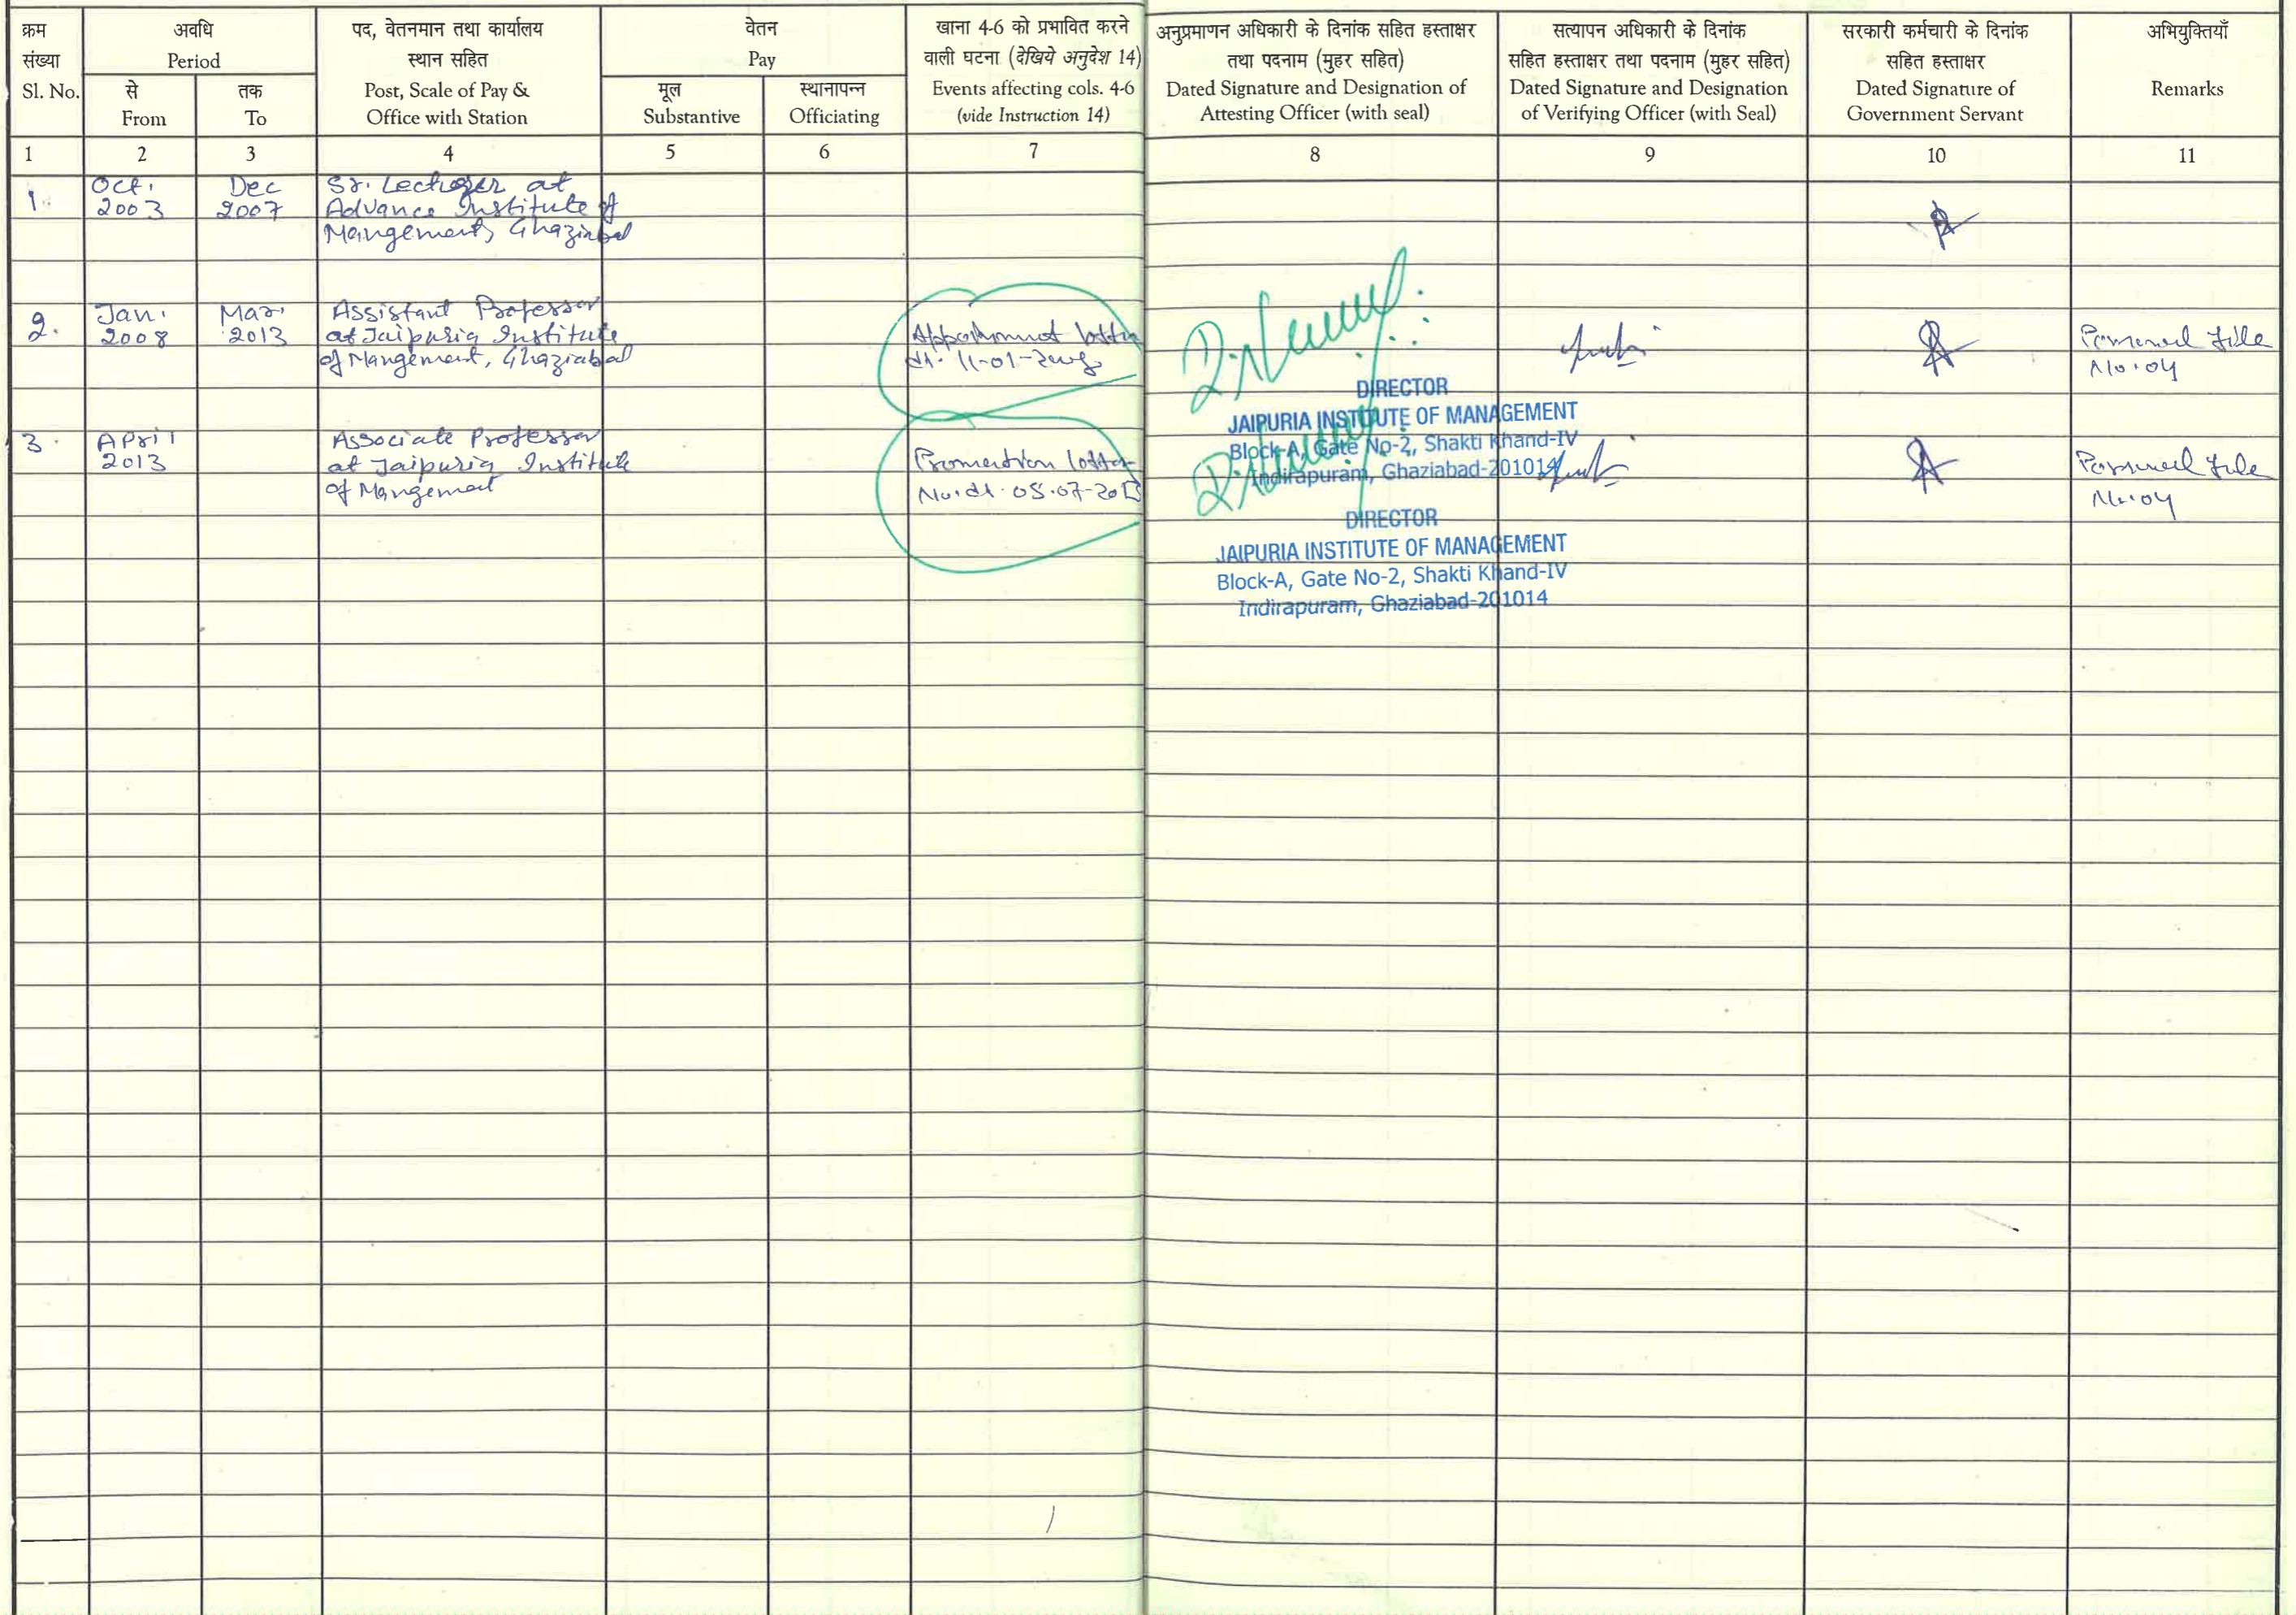 क्रम
संख्या
Sl. No.
अवधि
Period
से
From
तक
To
पद, वेतनमान तथा कार्यालय
स्थान सहित
Post, Scale of Pay &
Office with Station
वेतन
Pay
मूल
Substantive
स्थानापन्न
Officiating
खाना 4-6 को प्रभावित करने
वाली घटना (देखिये अनुदेश 14)
Events affecting cols. 4-6
(vide Instruction 14)
अनुप्रमाणन अधिकारी के दिनांक सहित हस्ताक्षर
तथा पदनाम (मुहर सहित)
Dated Signature and Designation of
Attesting Officer (with seal)
सत्यापन अधिकारी के दिनांक
सहित हस्ताक्षर तथा पदनाम (मुहर सहित)
Dated Signature and Designation
of Verifying Officer (with Seal)
सरकारी कर्मचारी के दिनांक
सहित हस्ताक्षर
Dated Signature of
Government Servant
अभियुक्तियाँ
Remarks
1 2 3 4 5 6 7 8 9 10 11
1.
Oct.
2003
Dec
2007
Sr. Lecturer at
Advance Institute of
Mangement, Ghaziabad
2.
Jan.
2008
Mar.
2013
Assistant Professor
at Jaipuria Institute
of Mangement, Ghaziabad
Appointment letter
dt. 11-01-2008
DIRECTOR
JAIPURIA INSTITUTE OF MANAGEMENT
Block-A, Gate No-2, Shakti Khand-IV
Indirapuram, Ghaziabad-201014
File
No. 04
3.
April
2013
Associate Professor
at Jaipuria Institute
of Mangement
letter
DIRECTOR
JAIPURIA INSTITUTE OF MANAGEMENT
Block-A, Gate No-2, Shakti Khand-IV
Indirapuram, Ghaziabad-201014
File
No. 04